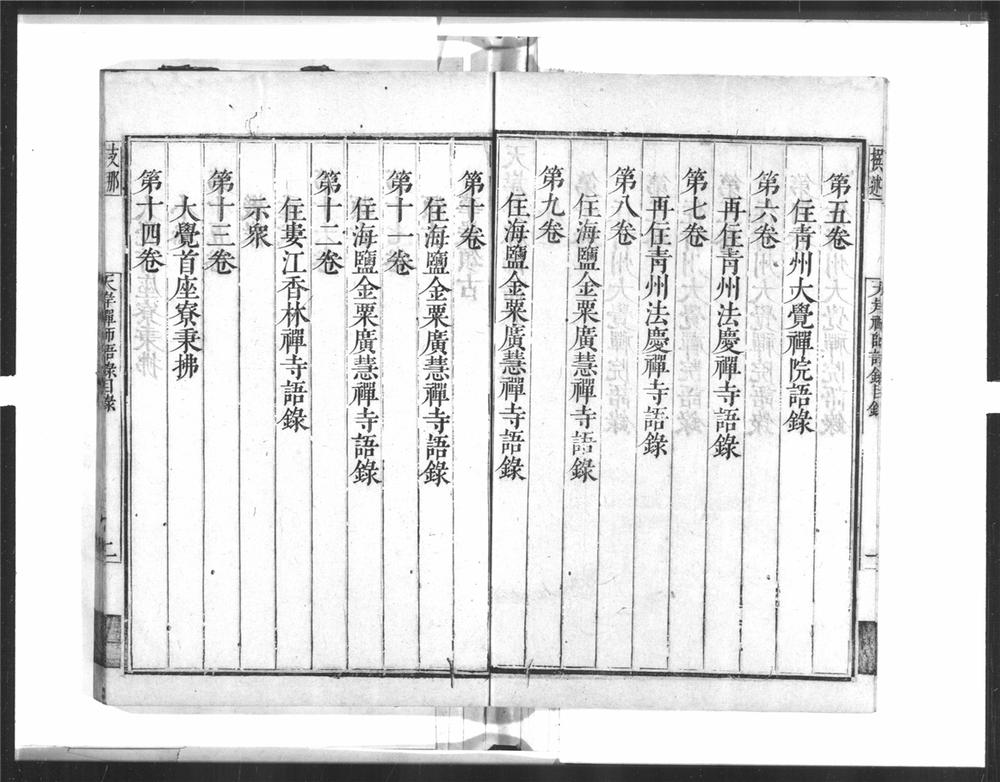 撰述
天岸禪師語錄目錄
二
第五卷
住青州大覺禪院語錄
第六卷
再住青州法慶禪寺語錄
第七卷
再住青州法慶禪寺語錄
第八卷
住海鹽金粟廣慧禪寺語錄
第九卷
住海鹽金粟廣慧禪寺語錄
第十卷
住海鹽金粟廣慧禪寺語錄
第十一卷
住海鹽金粟廣慧禪寺語錄
第十二卷
住婁江香林禪寺語錄
示衆
第十三卷
大覺首座寮秉拂
第十四卷
支那
天岸禪師語錄目錄
二